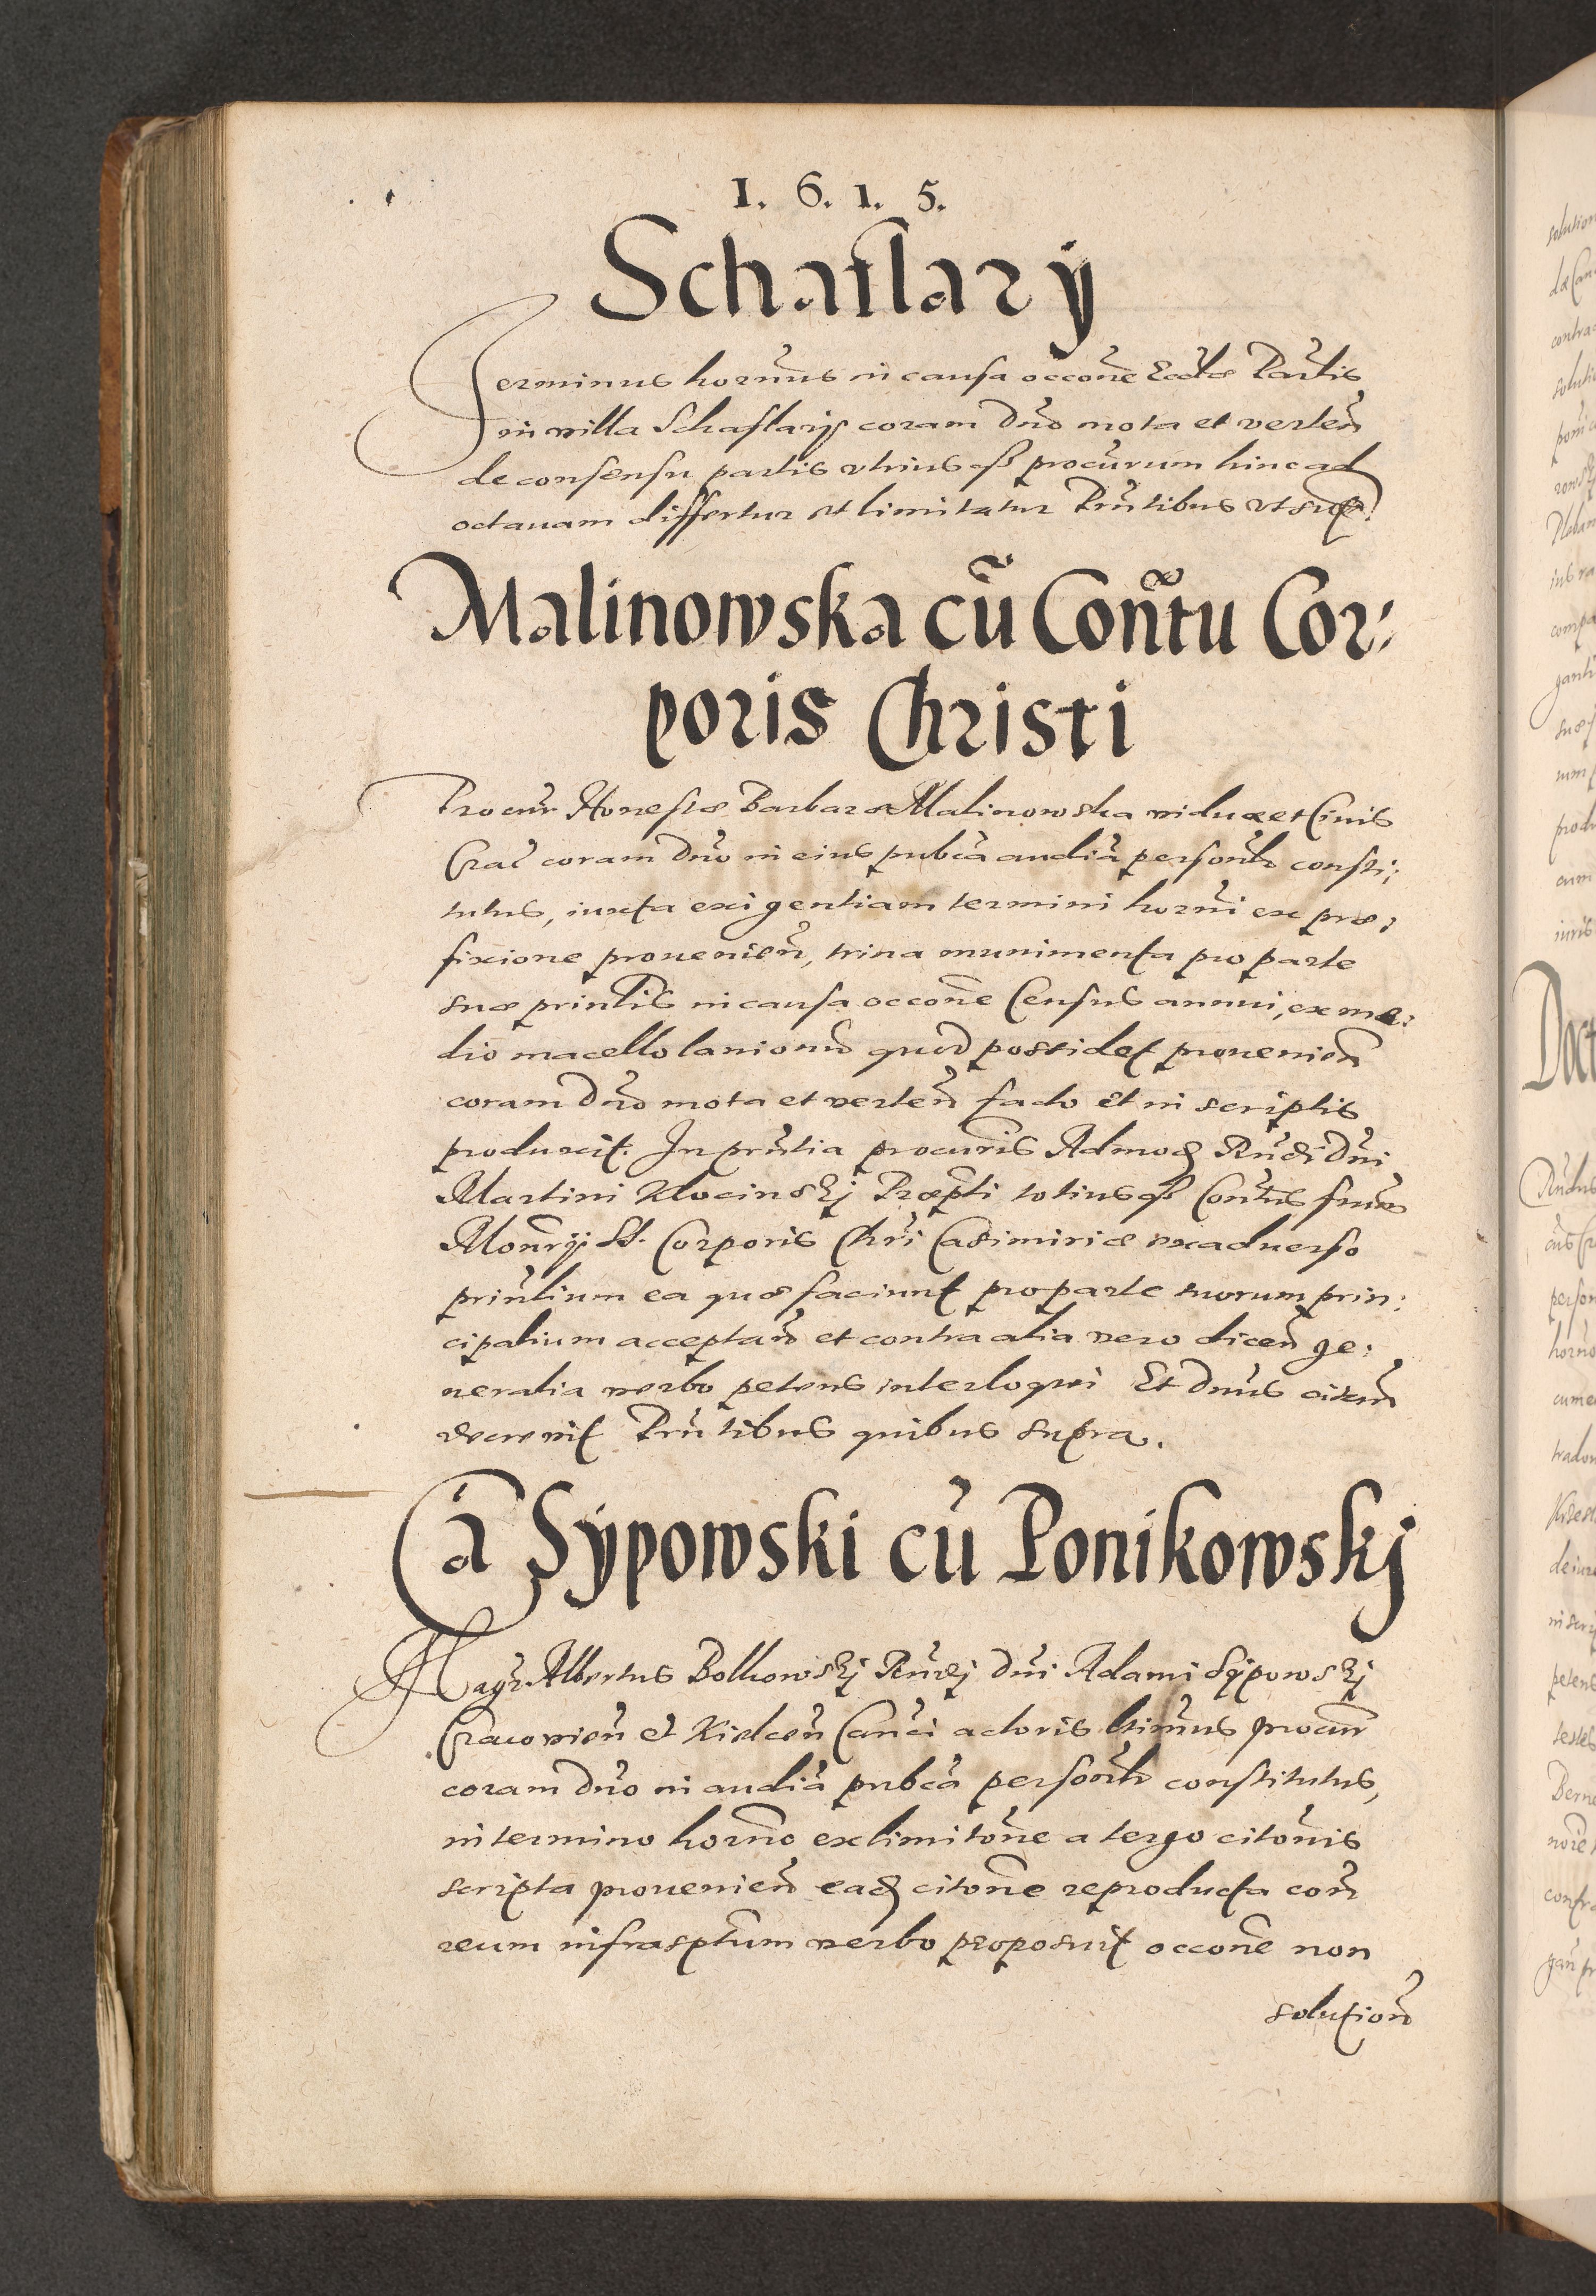 1. 6. 1. 5.
Schaflary
Terminus horñus in causa occoñe Ecclæ Parlis
in villa Schaflarÿ coram Dno mota et verteñ
de consensu partis utriusq̃ procurum hinc ad
octauam differtur et limitatur Prñtibus ut supra.
Malinowska cũ Conñtu Cor:
poris Christi
Procur Honestæ Barbaræ Malinowska viduæ et Civis
Crac̃ coram Dno in eius pubca audia personlr consti:
tutus, iuxta exigentiam termini horñi ex præ:
fixione proueniẽn, trina munimenta pro parte
suæ prinlis in causa occoñe Census annui, ex me:
dio macello lanionũ quod possidet proueniẽn
coram Dno mota et verteñ facto et in scriptis
produxit. In prñtia procuris Admod Rñdi Dni
Martini Klocinskj Præpti totiusq̃ Conñtus sui
Monrij SS. Corporis Chri Casimiriæ ex aduerso
prinlium ea quæ faciunt pro parte suorum prin:
cipalium acceptañ et contra alia vero diceñ ge:
neralia verbo petens interloqui Et Dnus citeum
decreuit Prñtibus quibus supra.
Ca Sÿpowski cũ Ponikowskj
Magr Albertus Bolkowskj Rñdj Dni Adami Sÿpowskj
Cracovieñ et Kielceñ Canci actoris ltimus procur
coram Dno in audia pubca personlr constitutus,
in termino horño ex limitoñe a tergo citoñis
scripta proueniẽn ead citoñe reproducta coñ
reum infrasptum verbo proposuit occoñe non
solutioñ